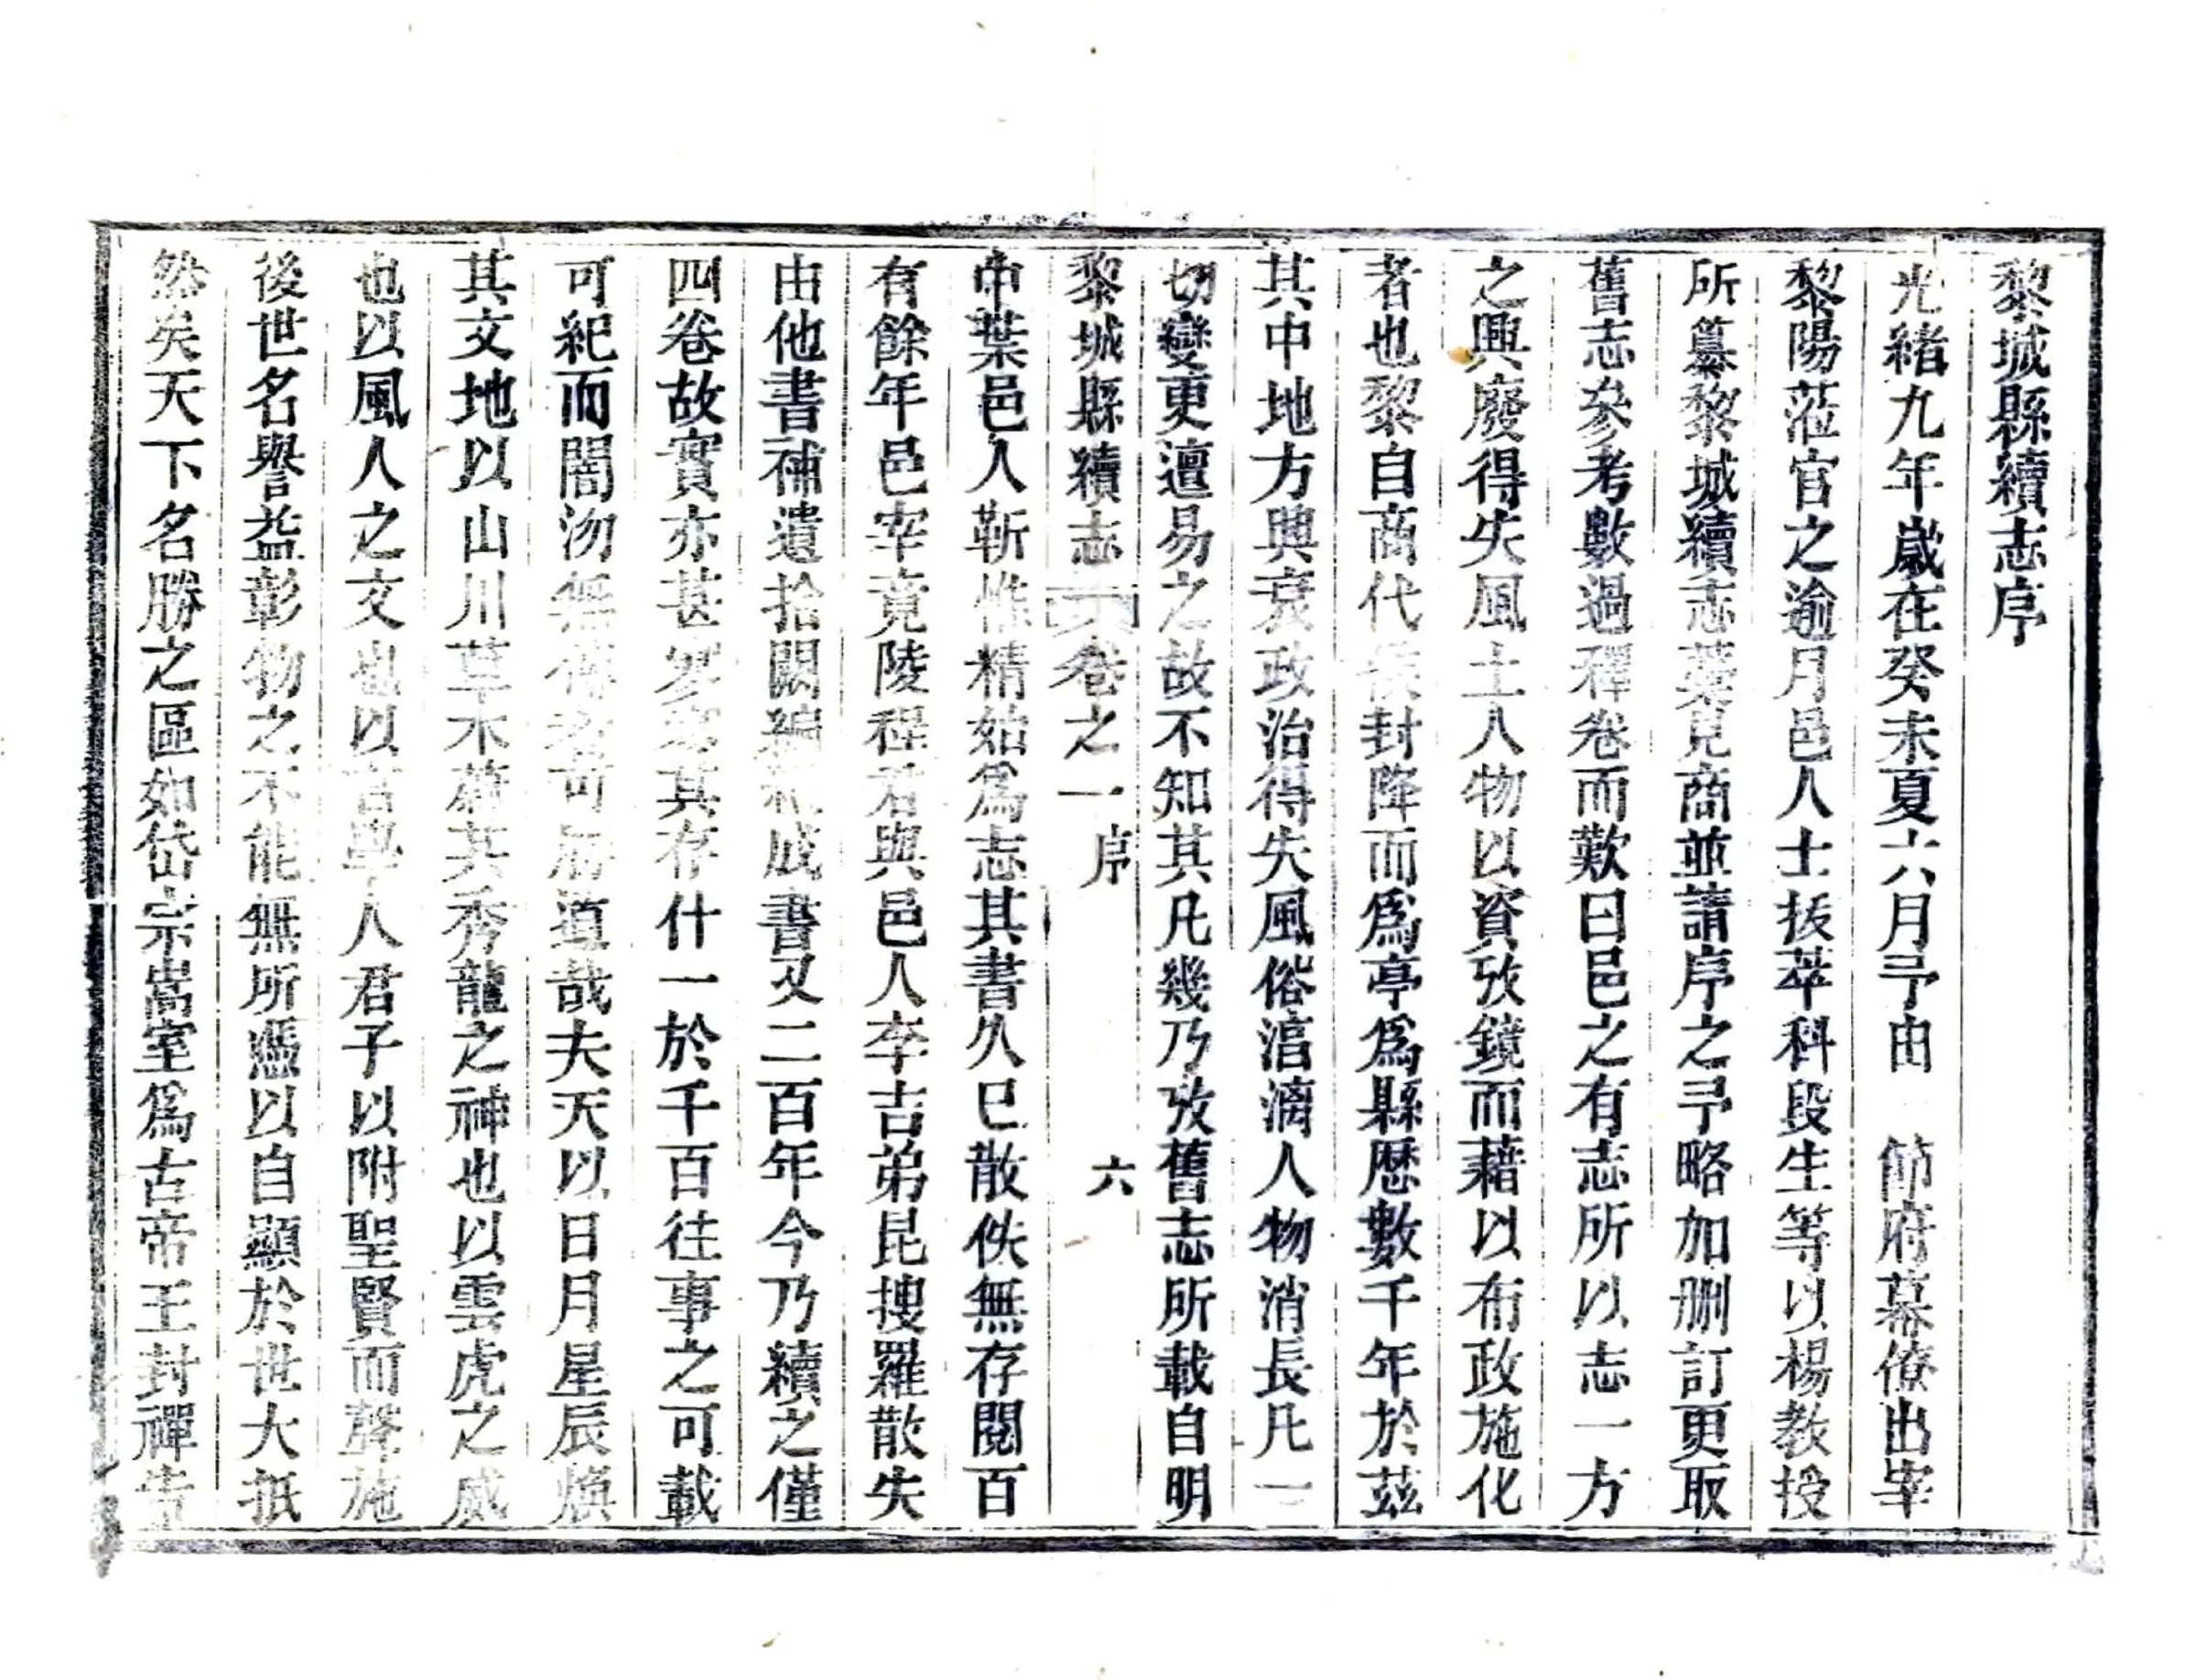 黎城縣續志序
光緒九年歲在癸未夏六月予由　節府幕僚出宰
黎陽蒞官之逾月邑人士拔萃科段生等以楊教授
所纂黎城續志藁見商並請序之予略加刪訂更取
舊志參考數過禪卷而歎曰邑之有志所以志一方
之興廢得失風土人物以資攷鏡而藉以布政施化
者也黎自商代侯封降而爲亭爲縣歷數千年於茲
其中地方興衰政治得失風俗涫漓人物消長凡一
切變更澶易之故不知其凡幾乃攷舊志所載自明
黎城縣續志 卷之一 序 六
中葉邑人靳惟精始爲志其書久已散佚無存閱百
有餘年邑宰竟陵程君與邑人李吉弟昆搜羅散失
由他書補遺拾闕編纂成書又二百年今乃續之僅
四卷故實亦甚寥寥其存什一於千百往事之可載
可紀而闇沕無傳者可勝道哉夫天以日月星辰煥
其文地以山川草木蘊其秀龍之神也以雲虎之威
也以風人之文也以言學人君子以附聖賢而聲施
後世名譽益彰物之不能無所憑以自顯於世大抵
然矣天下名勝之區如岱宗嵩室爲古帝王封禪